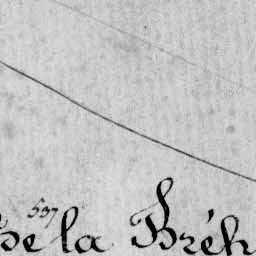 537
de la Bréh